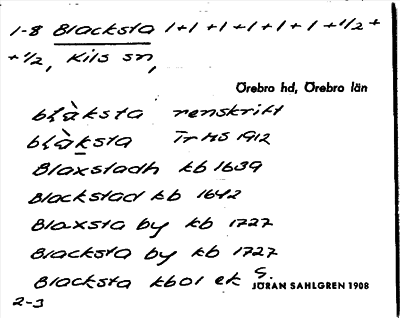 1-8 Blacksta 1+1+1+1+1+1/2+
+1/2, Kils sn,
Örebro hd, Örebro län
blàksta renskrift
blàksta TrHS 1912
Blaxstadh kb 1639
Blackstad kb 1642
Blaxsta by kb 1727
Blacksta by kb 1727
Blacksta kbol ek G.
JÖRAN SAHLGREN 1908
2-3